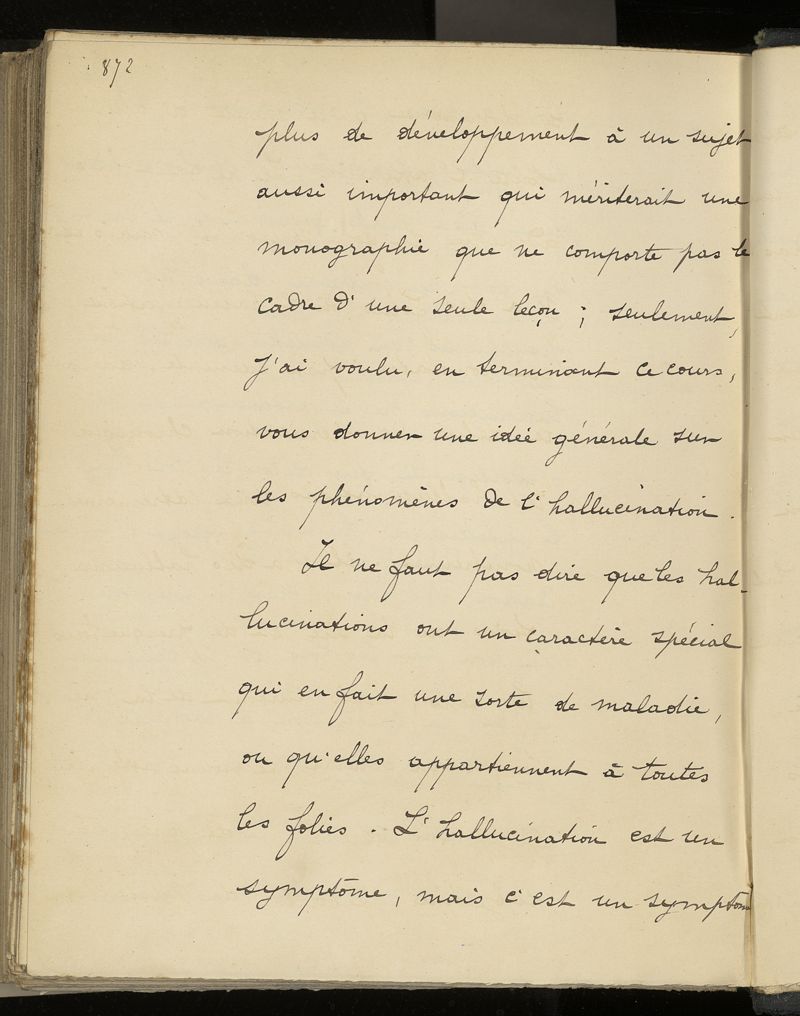 872
plus de développement à un sujet
aussi important qui mériterait une
monographie que ne comporte pas le
cadre d'une seule leçon ; seulement,
j'ai voulu, en terminant ce cours,
vous donner une idée générale sur
les phénomènes de l'hallucination.
Il ne faut pas dire que les hal-
lucinations ont un caractère spécial
qui en fait une sorte de maladie,
ou qu'elles appartiennent à toutes
les folies. L'hallucination est un
symptôme, mais c'est un symptôme